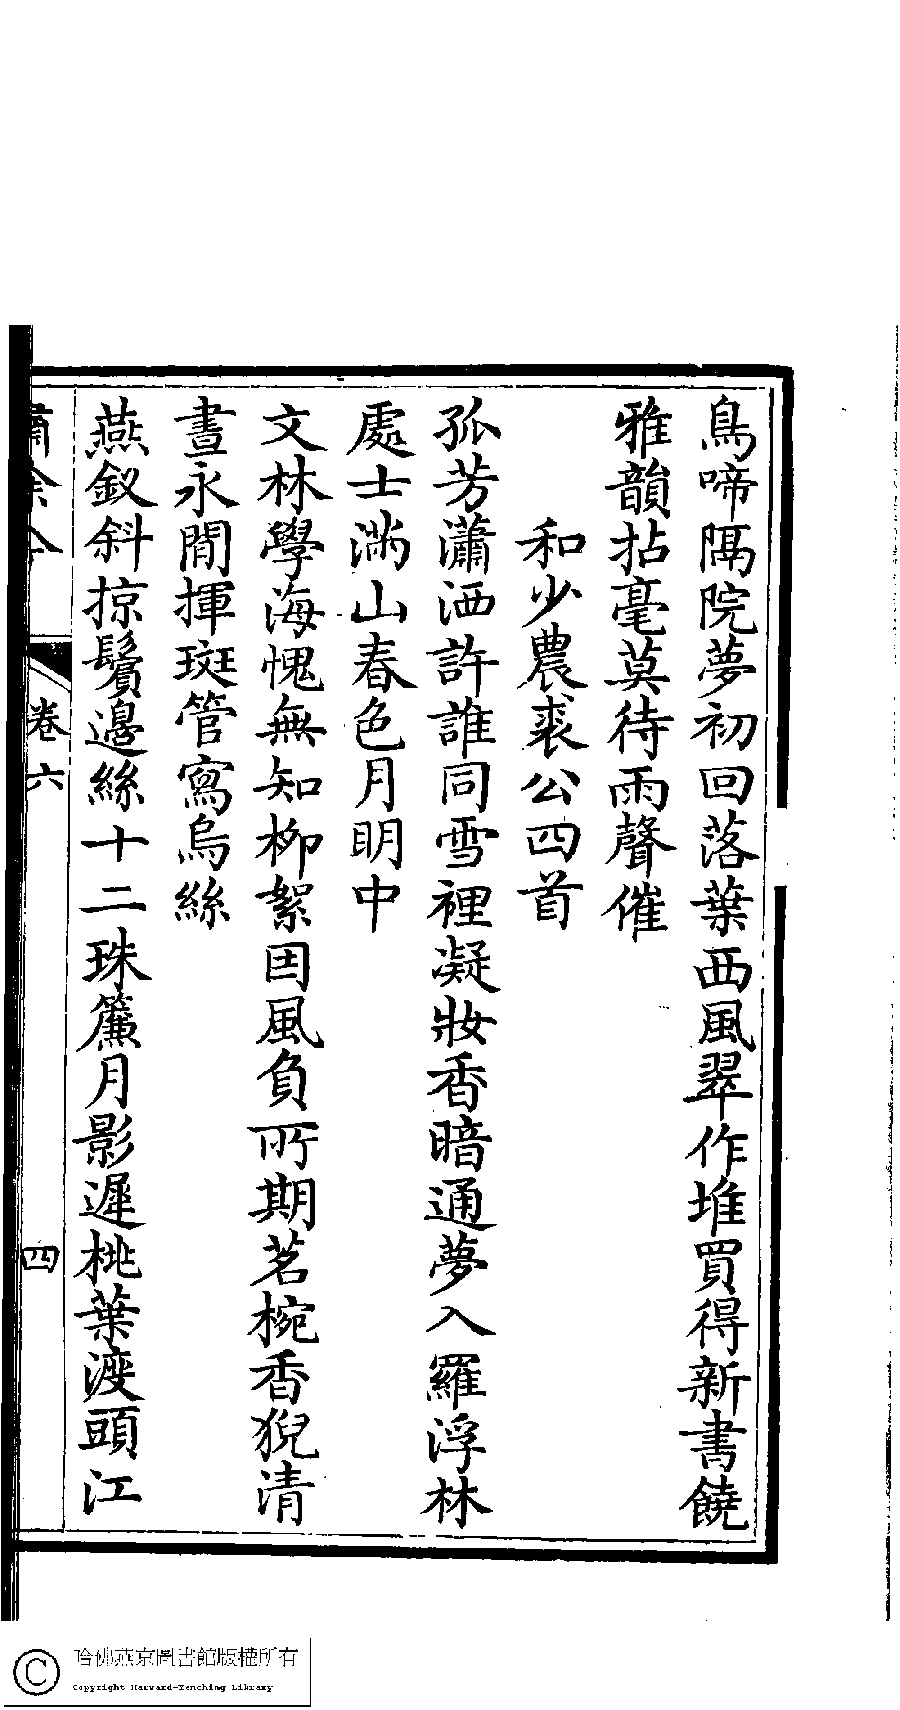 鳥啼隔院夢初回落葉西風翠作堆買得新書饒
雅韻拈毫莫待雨聲催
和少農裘公四首
孤芳瀟洒許誰同雪裡凝妝香暗通夢入羅浮林
處士滿山春色月明中
文林學海愧無知柳絮因風負所期茗椀香猊清
晝永閒揮斑管寫烏絲
燕釵斜掠鬢邊絲十二珠簾月影遲桃葉渡頭江
卷六
四
哈佛燕京圖書館版權所有
Copyright Harvard-Yenching Library